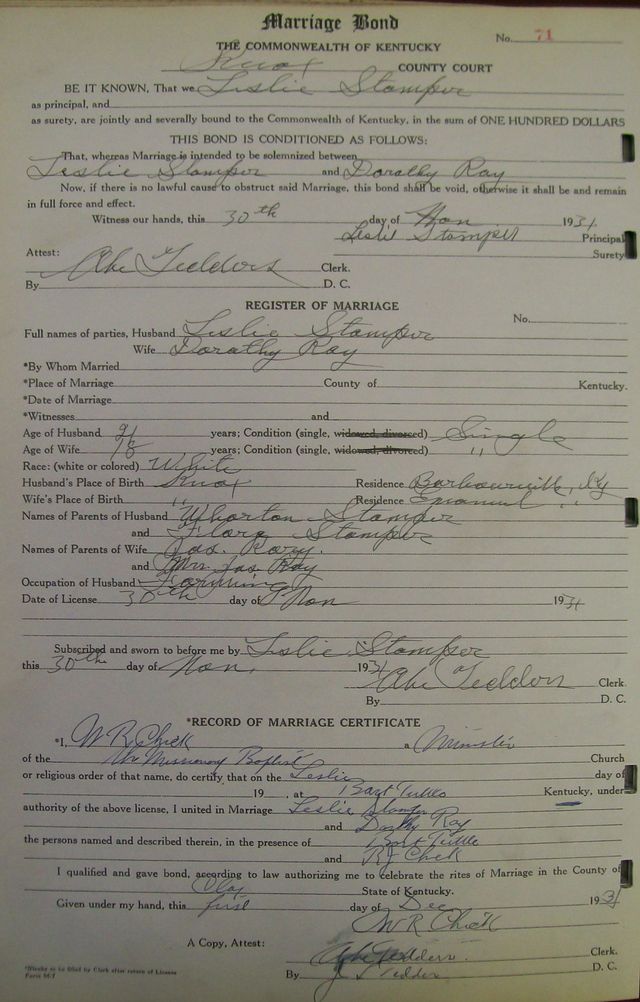 Marriage Bond
No. 71
THE COMMONWEALTH OF KENTUCKY
Knox COUNTY COURT
BE IT KNOWN, That we Leslie Stamper
as principal, and
as surety, are jointly and severally bound to the Commonwealth of Kentucky, in the sum of ONE HUNDRED DOLLARS
THIS BOND IS CONDITIONED AS FOLLOWS:
That, whereas Marriage is intended to be solemnized between
Leslie Stamper and Dorathy Ray
Now, if there is no lawful cause to obstruct said Marriage, this bond shall be void, otherwise it shall be and remain
in full force and effect.
Witness our hands, this 30th day of Nov 1931
Leslie Stamper Principal
Surety
Attest:
Abe Tedders Clerk.
By D. C.
REGISTER OF MARRIAGE
No.
Full names of parties, Husband Leslie Stamper
Wife Dorathy Ray
*By Whom Married
*Place of Marriage County of Kentucky.
*Date of Marriage
*Witnesses and
Age of Husband 21 years; Condition (single, widowed, divorced) Single
Age of Wife 18 years; Condition (single, widowed, divorced) "
Race: (white or colored) White
Husband's Place of Birth Knox Residence Barbourville, Ky
Wife's Place of Birth " Residence Emanuel "
Names of Parents of Husband Wharton Stamper
and Flora Stamper
Names of Parents of Wife Jas. Ray.
and Mrs Jas Ray
Occupation of Husband Farming
Date of License 30th day of Nov 1931
Subscribed and sworn to before me by Leslie Stamper
this 30th day of Nov. 1931
Abe Tedders Clerk.
By D. C.
*RECORD OF MARRIAGE CERTIFICATE
*I, W R Chick a Minister
of the the Missionary Baptist Church
or religious order of that name, do certify that on the Leslie day of
19 , at Bart Tuttle Kentucky, under
authority of the above license, I united in Marriage Leslie Stamper
and Dorthy Ray
the persons named and described therein, in the presence of Bart Tuttle
and R J Chick
I qualified and gave bond, according to law authorizing me to celebrate the rites of Marriage in the County of
Clay State of Kentucky.
Given under my hand, this first day of Dec 1931
W R Chick
A Copy, Attest:
Abe Tedders. Clerk.
By Tedders D. C.
*Blanks to be filled by Clerk after return of License